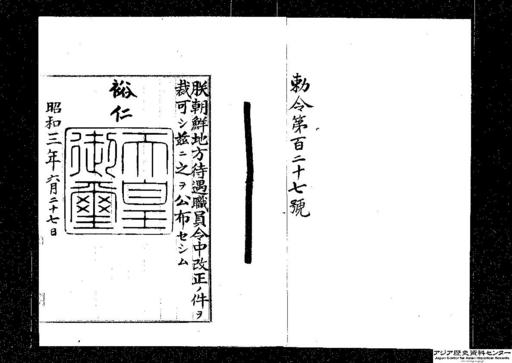 勅令第百二十七號
朕朝鮮地方待遇職員令中改正ノ件ヲ
裁可シ茲ニ之ヲ公布セシム
裕仁
天皇
御璽
昭和三年六月二十七日
アジア歴史資料センター
Japan Center for Asian Historical Records